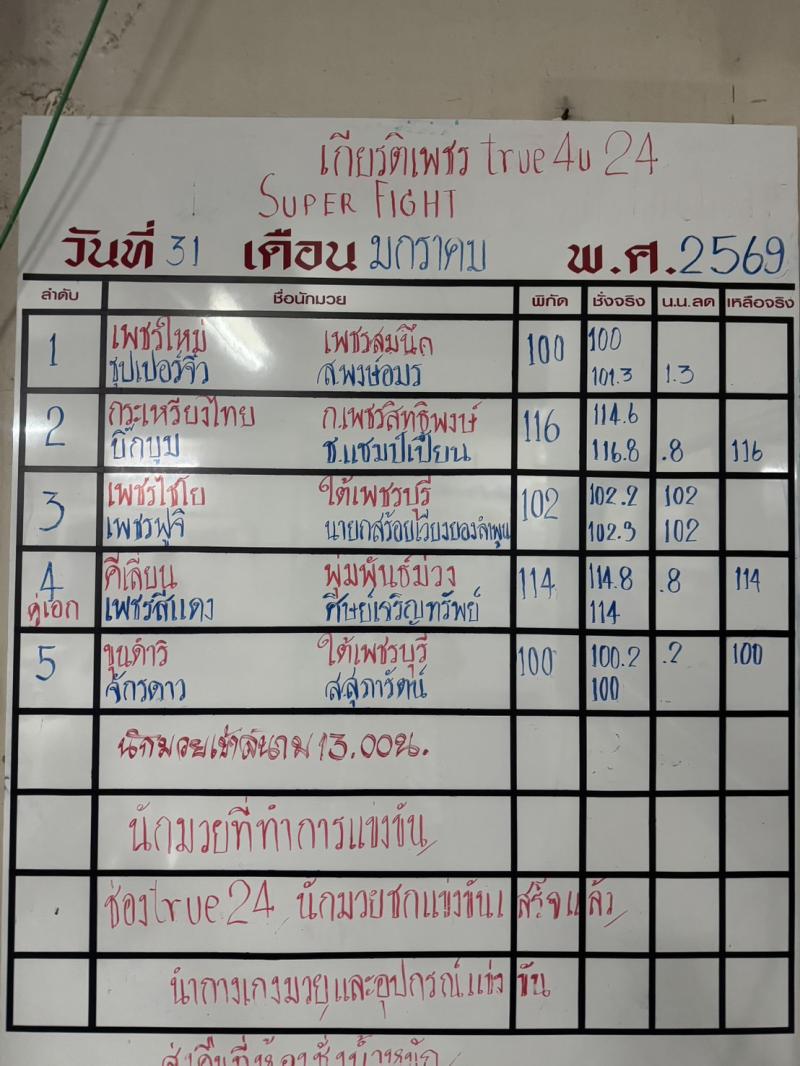 เกียรติเพชร true4u 24
SUPER FIGHT
วันที่ 31 เดือน มกราคม พ.ศ. 2569
ลำดับ ชื่อนักมวย พิกัด ชั่งจริง น.น.ลด เหลือจริง
1 เพชรใหม่ เพชรสมนึก 100 100
ซุปเปอร์จิ๋ว ส.พงษ์อมร 101.3 1.3
2 กระเหรี่ยงไทย ก.เพชรสิทธิพงษ์ 116 114.6
บิ๊กบูม ช.แชมป์เปี้ยน 116.8 .8 116
3 เพชรไชโย ใต้เพชรบุรี 102 102.2 102
เพชรฟูจิ นายกสร้อยเวียงยองลำพูน 102.3 102
4 คีเลียน พุ่มพันธ์ม่วง 114 114.8 .8 114
คู่เอก เพชรสีแดง ศิษย์เจริญทรัพย์ 114
5 ขุนดำริ ใต้เพชรบุรี 100 100.2 .2 100
จักรดาว ส.สุภารัตน์ 100
นักมวยเข้าสนาม 13.00น.
นักมวยที่ทำการแข่งขัน
ช่องtrue24 นักมวยชกแข่งขันเสร็จแล้ว
นำกางเกงมวยและอุปกรณ์แข่งขัน
ส่งคืนที่ห้องชั่งน้ำหนัก